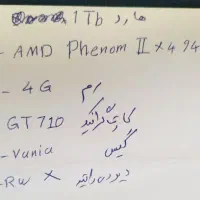 هارد 1Tb
- AMD Phenom II x4 94
- 4G رم
GT 710 کارت گرافیک
- Vania کیس
- RW دی وی دی رایتر